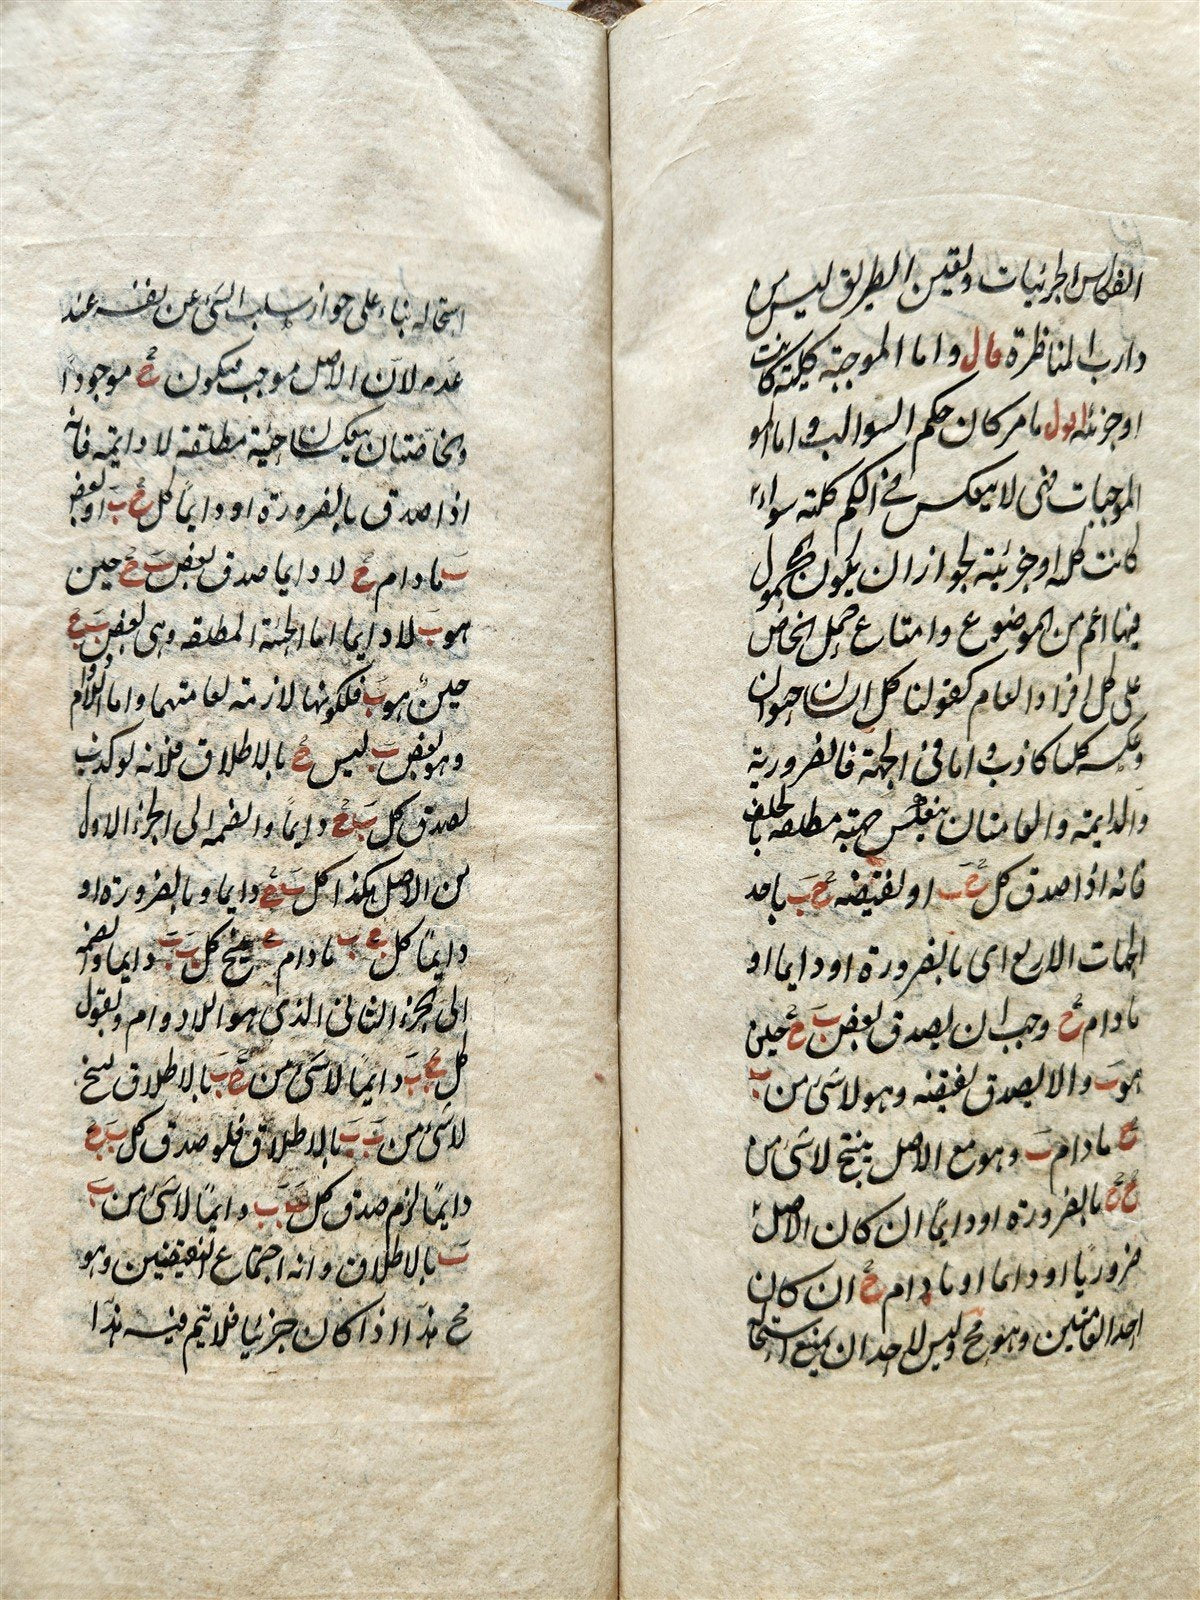 انعكاس الجزئيات وتعين الطريق ليس من
داب المناظرة قال واما الموجبة كلية كانت
او جزئية اقول ما مر كان حكم السوالب واما
الموجبات فهى لا ينعكس فى الكم كلية سواء
كانت كلية او جزئية لجواز ان يكون المحمول
فيها اعم من الموضوع وامتناع حمل الخاص
على كل افراد العام كقولنا كل انسان حيوان
وعكسه كليا كاذب واما فى الجهة فالضرورية
والدايمة والعامتان ينعكس حينية مطلقة بالخلف
فانه اذا صدق كل ج ب او بعضه ج ب باحد
الجهات الاربع اى بالضرورة او دايما او
مادام ج وجب ان يصدق بعض ب ج حين
هو ب والا لصدق نقيضه وهو لا شئ من ب
ج مادام ب وهو مع الاصل ينتج لا شئ من
ج ج بالضرورة او دايما ان كان الاصل
ضروريا او دايما او مادام ج ان كان
احد العامتين وهو مح وليس لاحد ان يمنع استحالة
استحاله بناء على جواز سلب الشئ عن نفسه عند
عدمه لان الاصل موجب فيكون ج موجودا
والخاصتان ينعكسان حينية مطلقة لا دايمة فانه
اذا صدق بالضرورة او دايما كل ج ب او بعض
ب مادام ج لا دايما صدق بعض ب ج حين
هو ب لا دايما اما الحينية المطلقه وهى بعض ب ج
حين هو ب فلكونها لازمة لعامتهما واما اللادوام
وهو بعض ب ليس ج بالاطلاق فلانه لو كذب
لصدق كل ب ج دايما والضمه الى الجزء الاول
من الاصل هكذا كل ب ج دايما وبالضرورة او
دايما كل ج ب مادام ج ينتج كل ب ب دايما والضمه
الى الجزء الثانى الذى هو اللادوام ونقول
كل ج ب دايما لا شئ من ج ب بالاطلاق لينتج
لا شئ من ب ب بالاطلاق فلو صدق كل ب ج
دايما لزم صدق كل ب ب دايما لا شئ من ب
ب بالاطلاق وانه اجتماع النقيضين وهو
مح هذا اذا كان جزئيا فلا يتم فيه هذا